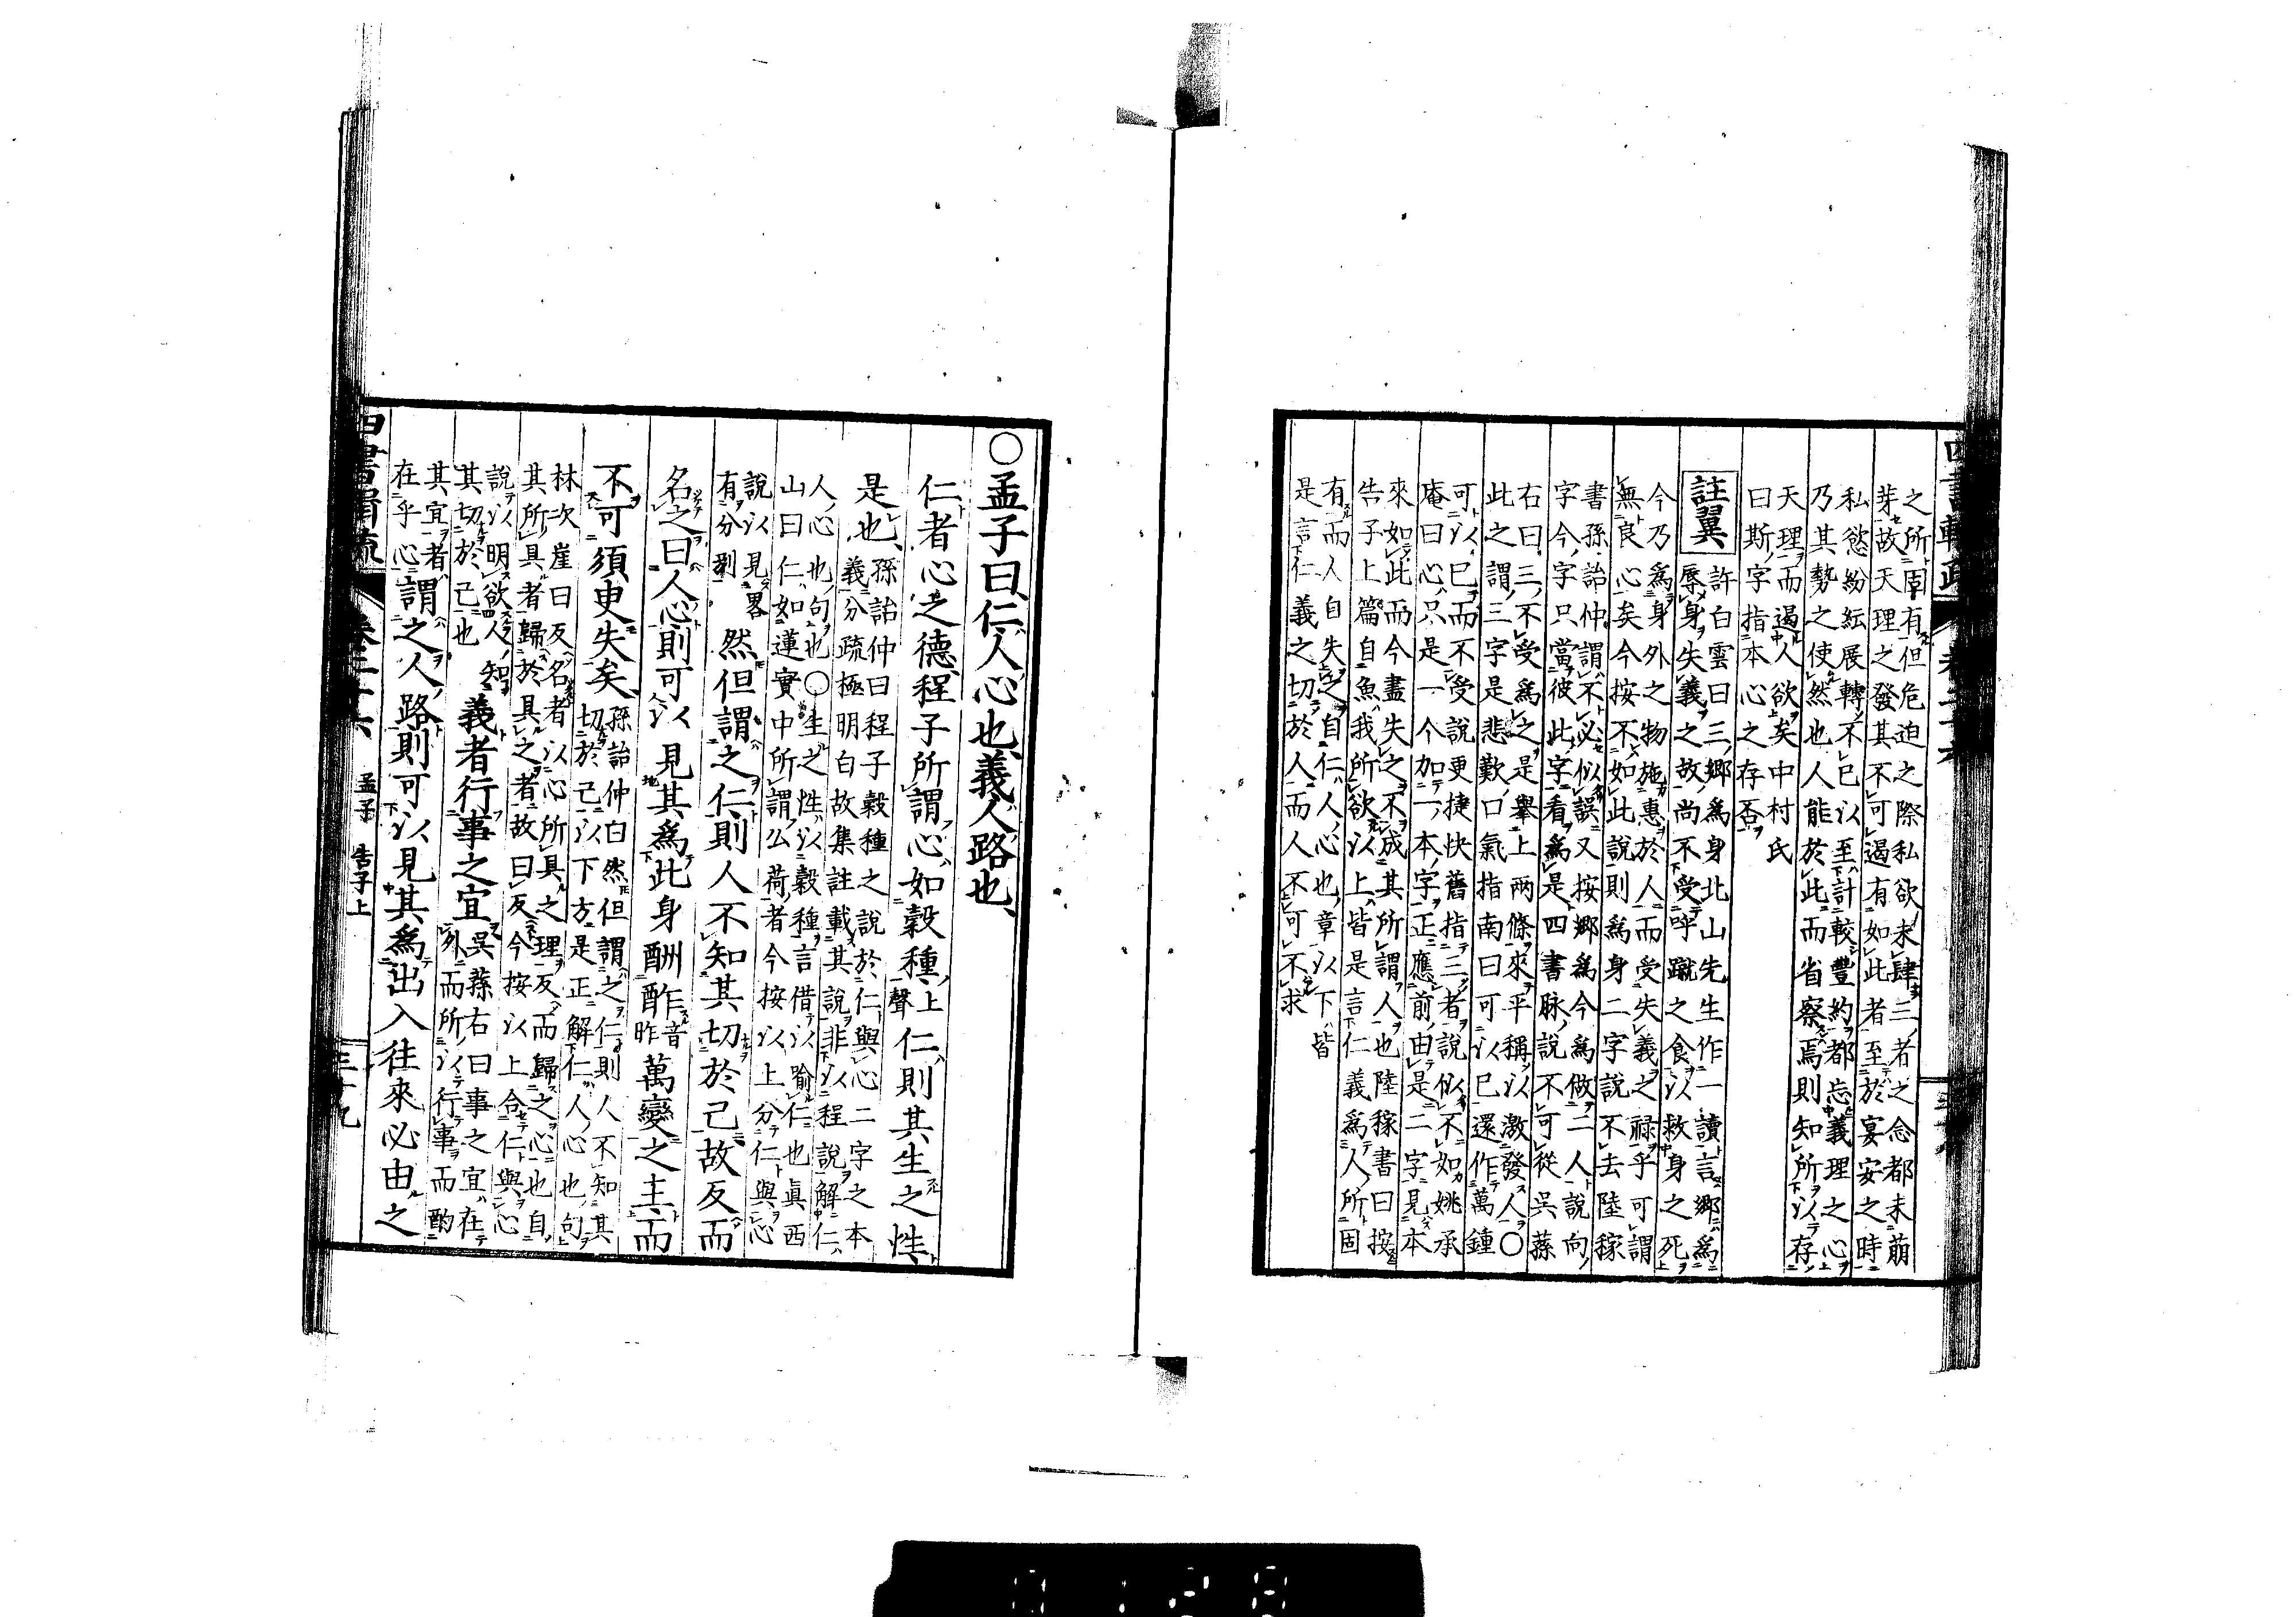 之所固有但危迫之際私欲未肆三者之念都未萠
芽故天理之發其不可遏有如此者至於宴安之時
私慾紛紜展轉不已以至計較豐約都忘義理之心
乃其勢之使然也人能於此而省察焉則知所以存
天理而遏人欲矣中村氏
曰斯字指本心之存否
註翼
許白雲曰三郷爲身北山先生作一讀言郷爲
辱身失義之故尚不受嘑蹴之食以救身之死
今乃爲身外之物施惠於人而受失義之禄乎可謂
無良心矣今按不如此說則爲身二字說不去陸稼
書孫詒仲謂不必似誤又按郷爲今爲做二人說向
字今字只當彼此字看爲是四書脉說不可從吳蓀
右曰三不受爲之是舉上兩條來平稱以激發人○
此之謂三字是悲歎口氣指南曰可以已還作萬鍾
可以已而不受說更捷快舊指三者說似不如姚承
庵曰心只是一个加一本字正應前由是二字見本
來如此而今盡失之不成其所謂人也陸稼書曰按
告子上篇自魚我所欲以上皆是言仁義爲人所固
有而人自失之自仁人心也章以下皆
是言仁義之切於人而人不可不求
○孟子曰仁人心也義人路也
仁者心之德程子所謂心如穀種上聲仁則其生之性
是也
孫詒仲曰程子穀種之說於仁與心二字之本
義分疏極明白故集註載其說非以程說解仁
人心也句也○生之性以穀種言借以喻仁也眞西
山曰仁如蓮實中所謂公荷者今按以上分仁與心
說以見畧
有分別
然但謂之仁則人不知其切於己故反而
名之曰人心則可以見其爲此身酬酢音昨萬變之主而
不可須臾失矣
孫詒仲曰然但謂之仁則人不知其
切於己以下方是正解仁人心也句
林次崖曰反名者以心所具之理反而歸之心也自
其所具者歸於具之者故曰反今按以上合仁與心
說以明欲人知
其切於己也
義者行事之宜
吳蓀右曰事之宜在
外而所以行事而酌
其宜者
在乎心
謂之人路則可以見其爲出入往來必由之
孟子 告子上